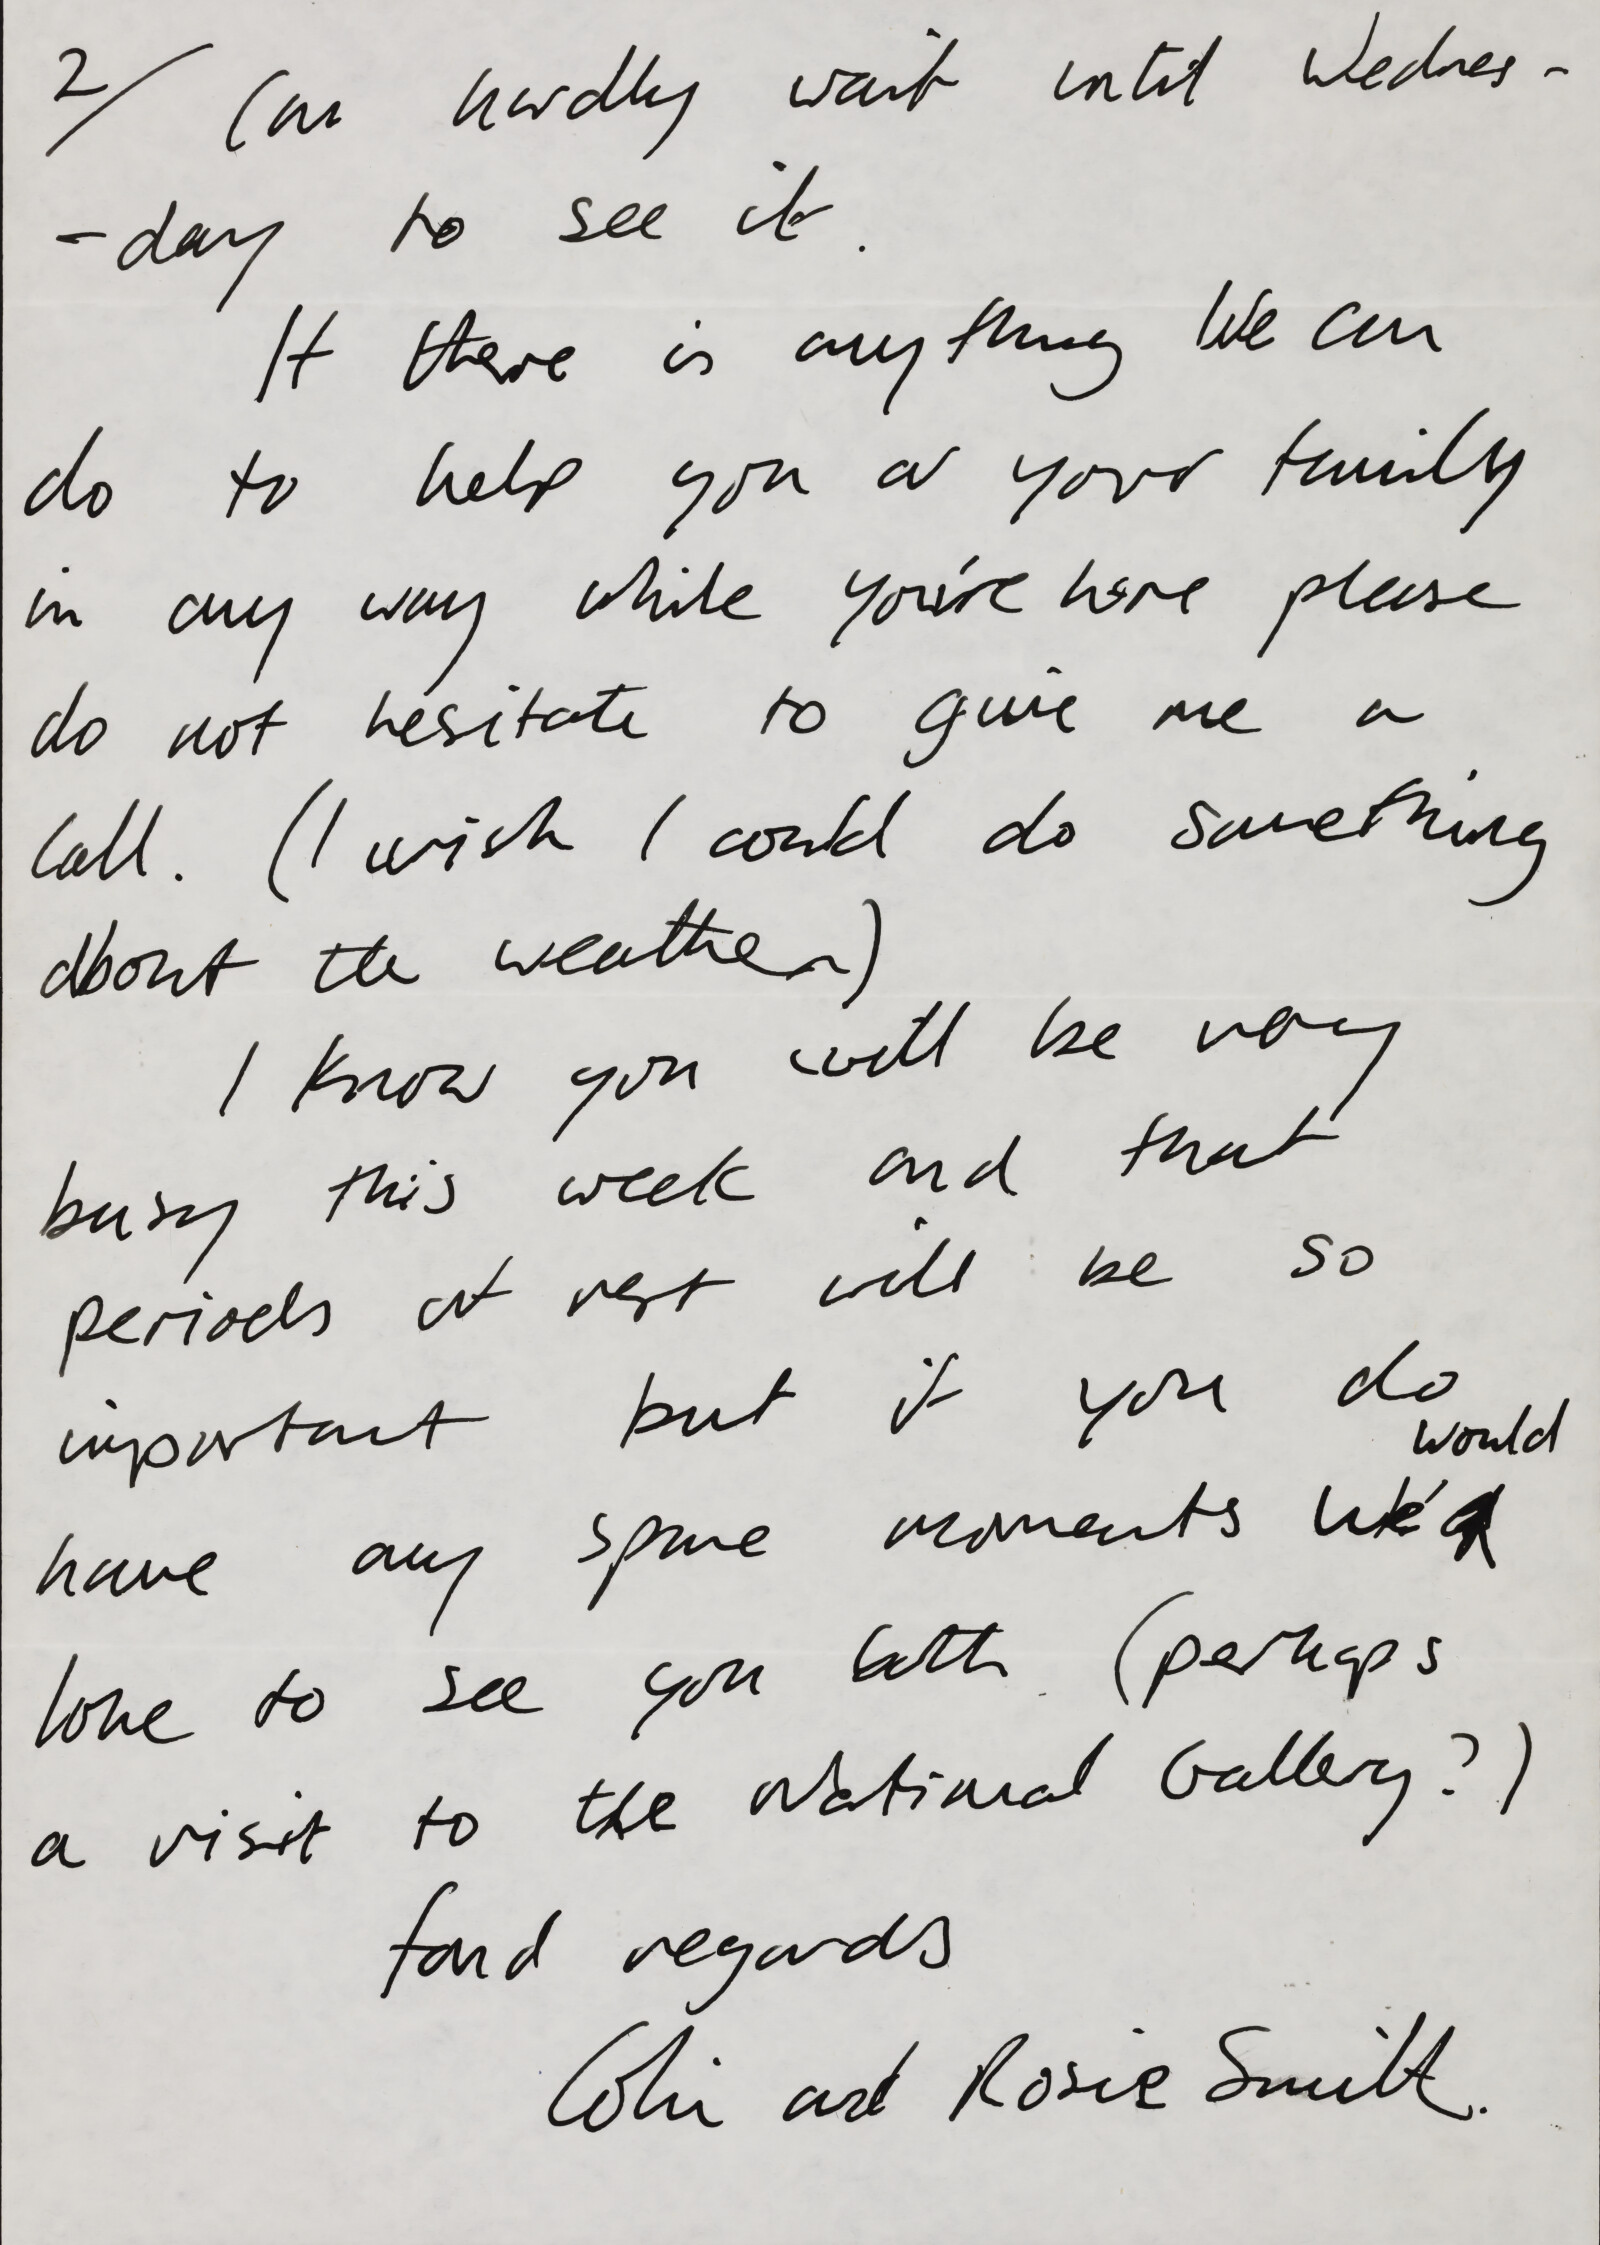 2/ Can hardly wait until Wednes-
-day to see it.
If there is anything We can
do to help you or your family
in any way while you're here please
do not hesitate to give me a
Call. (I wish I could do something
about the weather)
I know you will be very
busy this week and that
periods of rest will be so
important but if you do
would
have any spare moments we'd
love to see you both (perhaps
a visit to the National Gallery?)
fond regards
Colin and Rosie Smith.